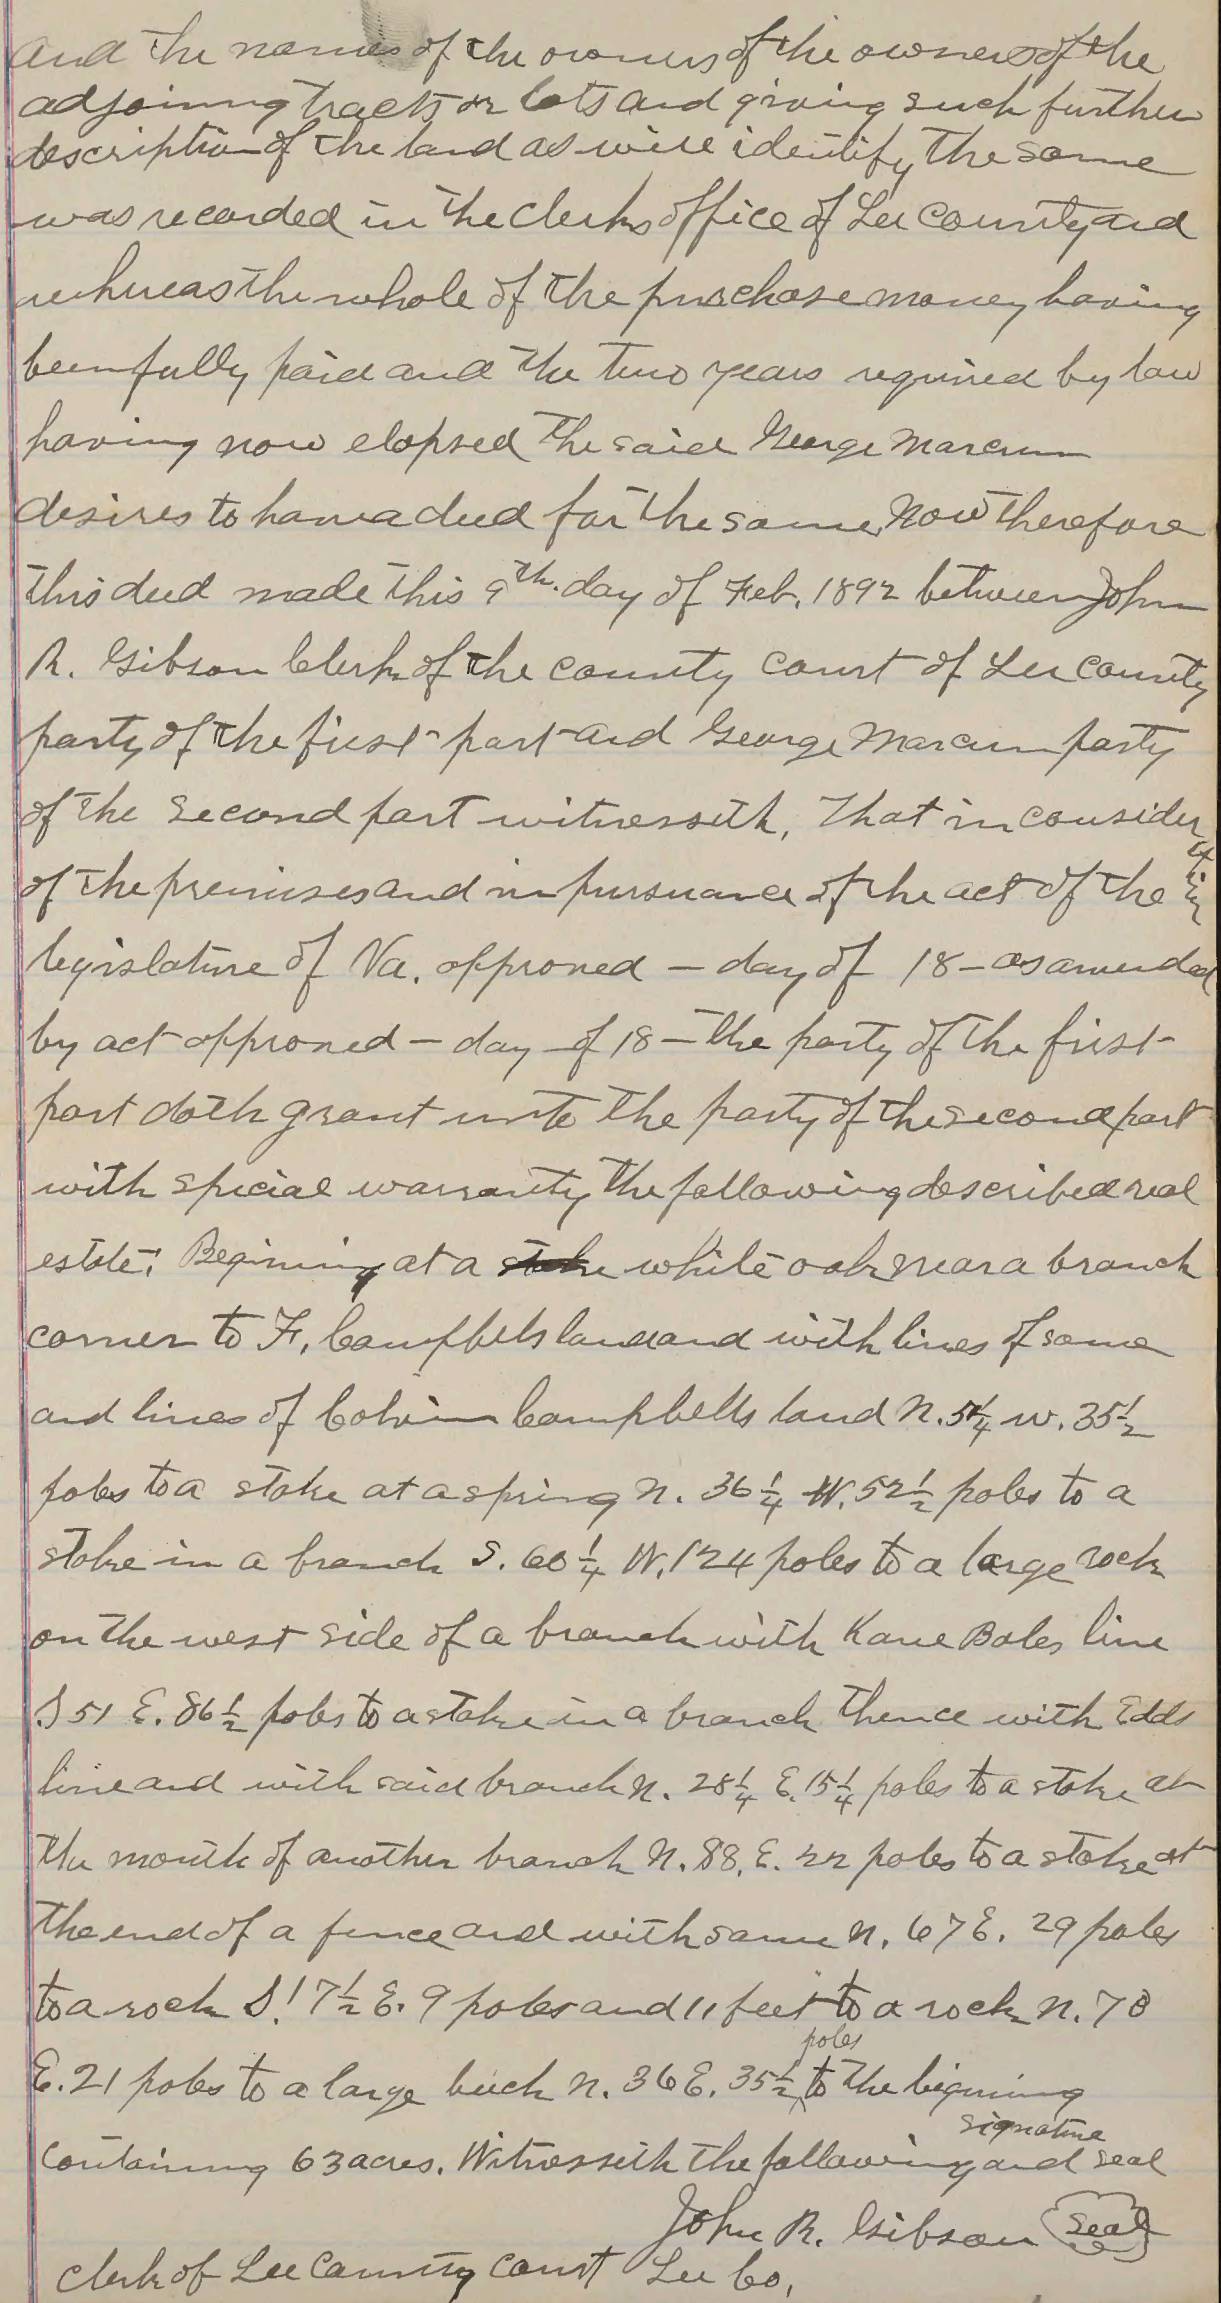 and the names of the owners of the owners of the
adjoining tracts or lots and giving such further
description of the land as will identify the same
was recorded in the clerks office of Lee County and
whereas the whole of the purchase money having
been fully paid and the two years required by law
having now elapsed the said George Marcum
desires to have a deed for the same, Now therefore
this deed made this 9th. day of Feb. 1892 between John
R. Gibson Clerk of the county court of Lee County
party of the first part and George Marcum party
of the second part witnesseth, That in consideration
of the premises and in pursuance of the act of the
legislature of Va. approved – day of 18 – as amended
by act approved – day of 18 – the party of the first
part doth grant unto the party of the second part
with special warranty the following described real
estate: Begining at a stake white oak near a branch
corner to F. Campbels land and with lines of same
and lines of Colvin Campbells land N. 5¼ W. 35½
poles to a stake at a spring N. 36¼ W. 52½ poles to a
stake in a branch S. 60¼ W. 124 poles to a large rock
on the west side of a branch with Kane Boles line
S 51 E. 86½ poles to a stake in a branch thence with Edds
line and with said branch N. 28¼ E. 15¼ poles to a stake at
the mouth of another branch N. 88. E. 22 poles to a stake at
the end of a fence and with same N. 67 E. 29 poles
to a rock S. 17½ E. 9 poles and 11 feet to a rock N. 78
E. 21 poles to a large beech N. 36 E. 35½ poles to the begining
containing 63 acres. Witnesseth the following signature and seal
John R. Gibson Seal
Clerk of Lee County Court Lee Co.